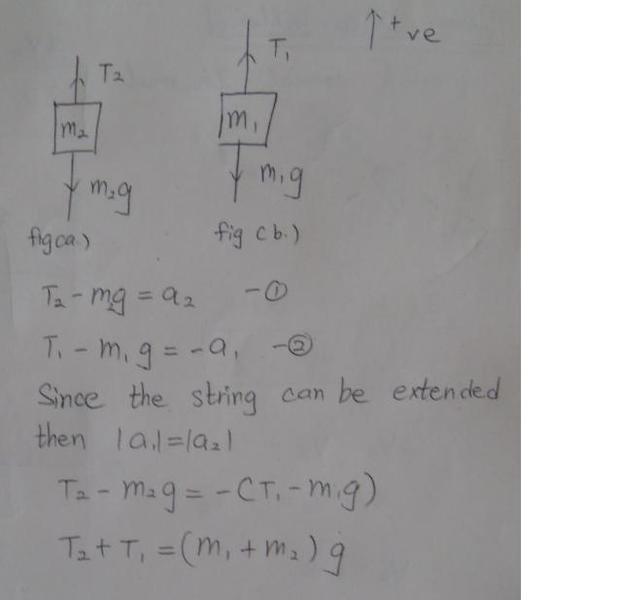 +ve
T₂
T₁
m₂
m₁
m₂g
m₁g
fig(a.)
fig (b.)
T₂ - m₂g = a₂ -①
T₁ - m₁g = -a₁ -②
Since the string can be extended
then |a₁|=|a₂|
T₂ - m₂g = -(T₁ - m₁g)
T₂ + T₁ = (m₁ + m₂) g